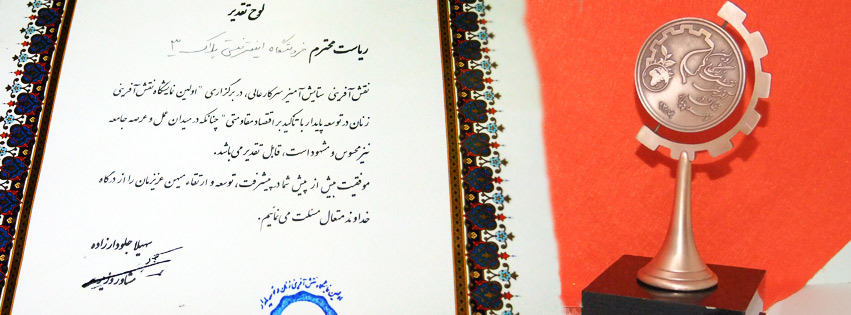 لوح تقدیر
ریاست محترم فروشگاه اینترنتی پلاک ۳
نقش‌آفرینی ستایش‌آمیز سرکارعالی، در برگزاری "اولین نمایشگاه نقش‌آفرینی
زنان در توسعه پایدار با تأکید بر اقتصاد مقاومتی" چنانکه در میدان عمل و عرصه جامعه
نیز محسوس و مشهود است، قابل تقدیر می‌باشد.
موفقیت بیش از پیش شما در پیشرفت، توسعه و ارتقاء میهن عزیزمان را از درگاه
خداوند متعال مسئلت می‌نمائیم.
سهیلا جلودارزاده
مشاور وزیر